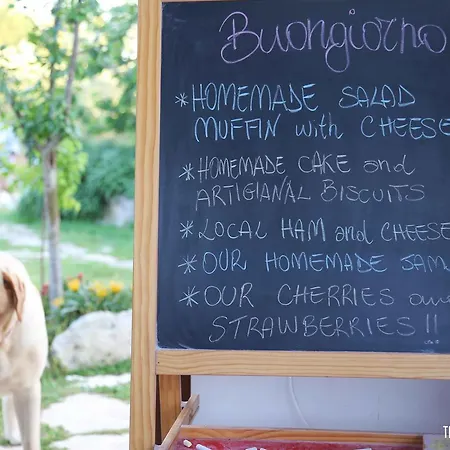 Buongiorno
* HOMEMADE SALAD
MUFFIN with CHEESE
* HOMEMADE CAKE and
ARTIGIANAL BISCUITS
* LOCAL HAM and CHEESE
* OUR HOMEMADE JAM
* OUR CHERRIES and
STRAWBERRIES !!